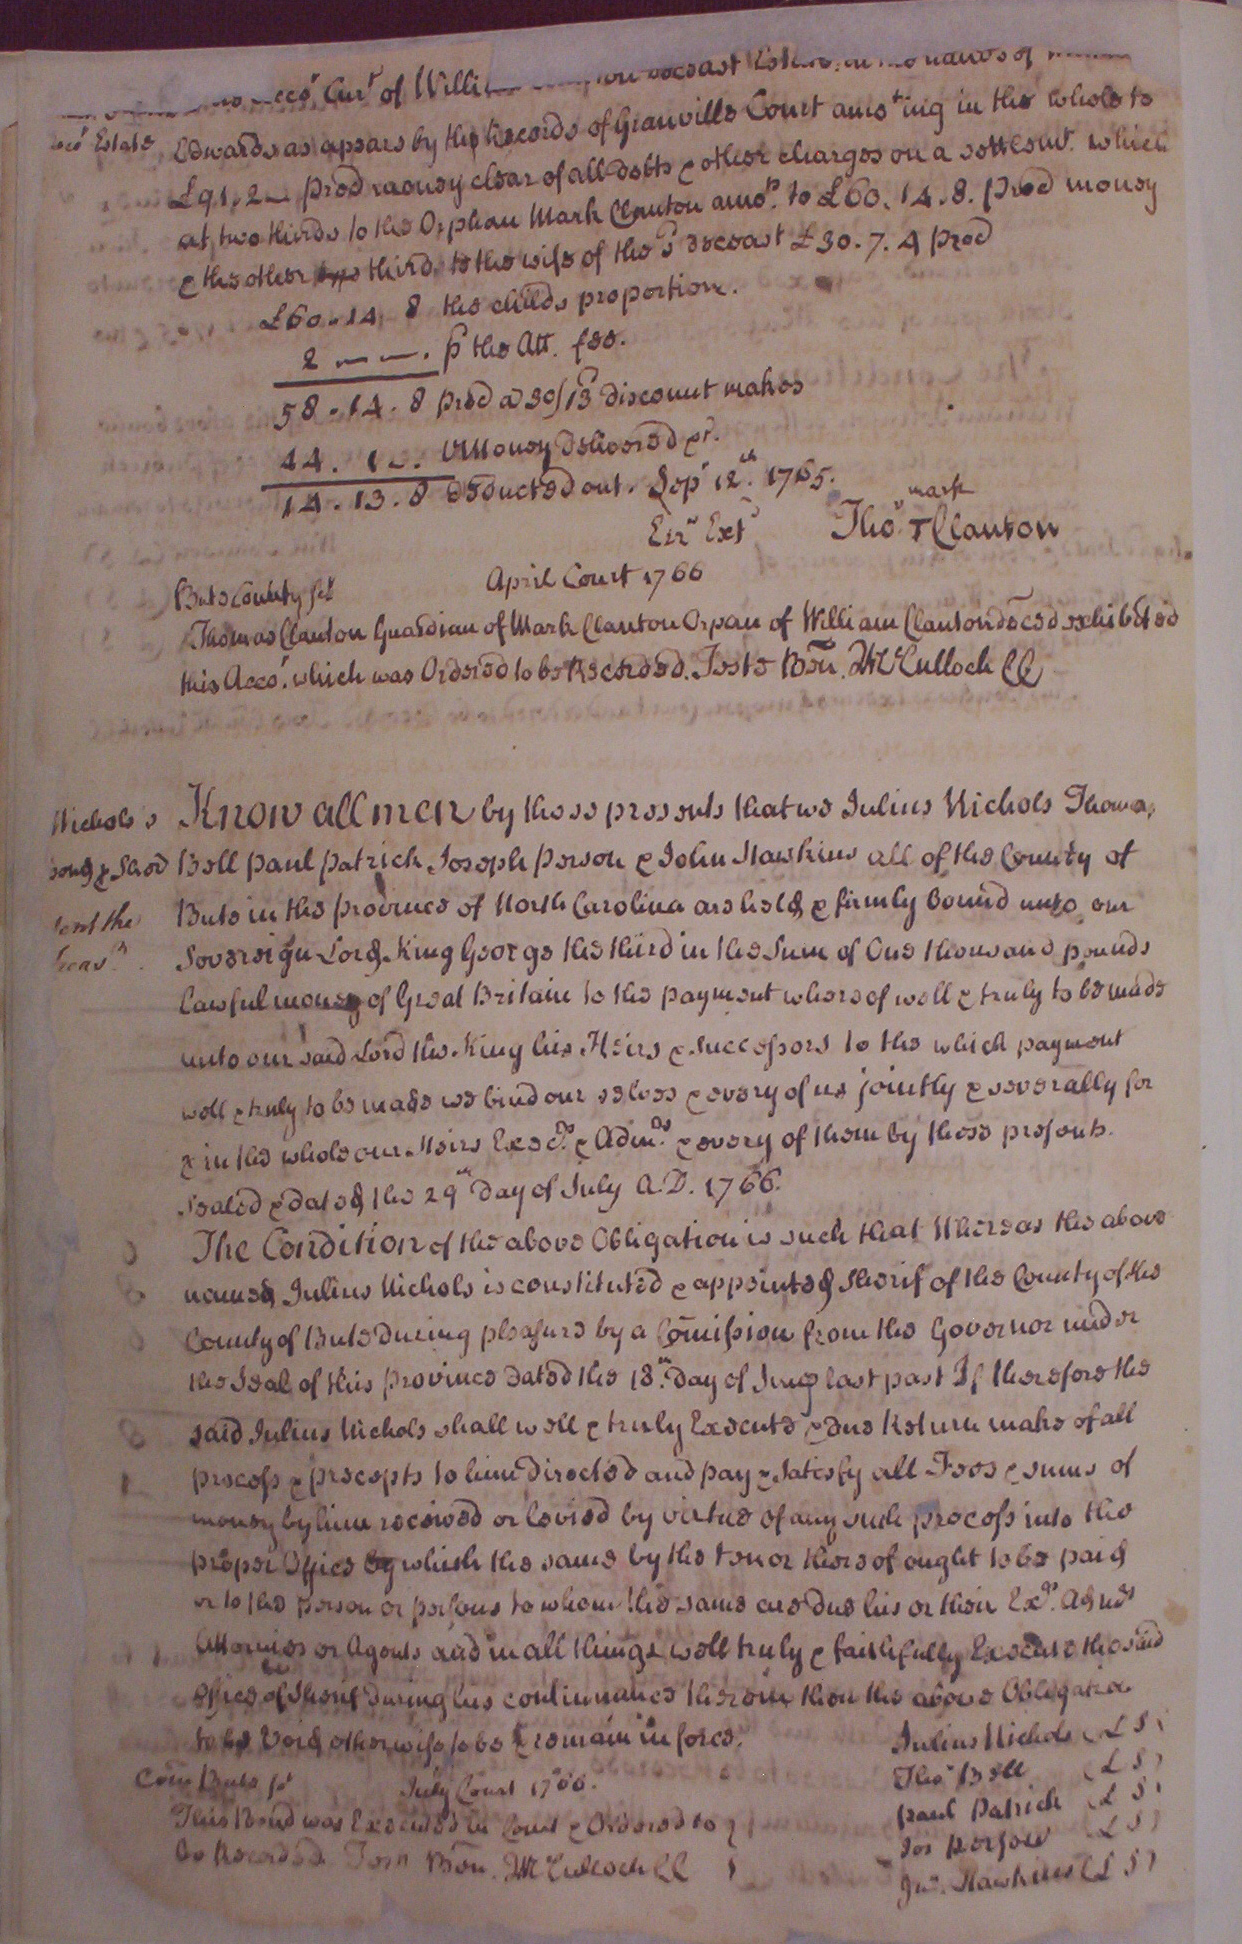 Acco.t Cur.t of Willi
deceast Estate in the hands of
Estate Edwards as apears by the Records of Granville Court amo.ting in the whole to
£91.2.— Proc money clear of all debts & other charges on a settlem.t which
at two thirds to the Orphan Mark Clanton amo.ts to £60.14.8. Proc money
& the other third to the wife of the s.d deceast £30.7.4 Proc
£60.14.8 the childs proportion.
2 — —. p the Att. fee.
58.14.8 Proc @ 30/ p discount makes
44. 1 —. V Money delivered
14.13.8 deducted out. Sep.r 12.th 1765.
Er.rs Ext.d Tho.s T Clanton
mark
Bute County Sct April Court 1766
Thomas Clanton Guardian of Mark Clanton Orpan of William Clanton deced exhibited
this Acco.t which was Ordered to be Recorded. Teste Ben. McCulloch CC
Nichols's Know all men by these presents that we Julius Nichols Thomas
bond & Sherf Bell Paul Patrick Joseph Person & John Hawkins all of the County of
Bute in the province of North Carolina are held & firmly bound unto our
Sovereign Lord King George the third in the Sum of One thousand pounds
lawful money of Great Britain to the payment whereof well & truly to be made
unto our said Lord the King his Heirs & Successors to the which payment
well & truly to be made we bind our selves & every of us jointly & severally for
& in the whole our Heirs Exec.rs & Adm.rs & every of them by these presents.
Sealed & dated the 29.th day of July A.D. 1766.
The Condition of the above Obligation is such that Whereas the above
named Julius Nichols is constituted & appointed Sherif of the County of the
County of Bute During pleasure by a Com̄ission from the Governor under
the Seal of this province dated the 18.th day of June last past If therefore the
said Julius Nichols shall well & truly Execute & due Return make of all
process & precepts to him directed and pay & Satisfy all Fees & sums of
money by him received or levied by virtue of any such process into the
proper Office by which the same by the tenor thereof ought to be paid
or to the person or persons to whom the same are due his or their Ex.rs Adm.rs
Attornies or Agents and in all things well truly & faithfully Execute the said
office of Sherif during his continuance therein then the above Obligation
to be Void otherwise to be & remain in force. Julius Nichols (L S)
Tho.s Bell (L S)
Com Bute Sct July Court 1766. Paul Patrick (L S)
This Bond was Executed in Court & Ordered to Jos Person (L S)
be Recorded Test Ben. McCulloch CC Jn.o Hawkins (L S)